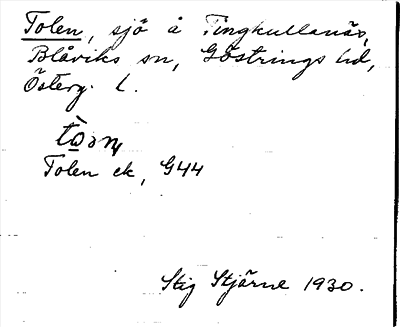 Tolen, sjö å Tingkullanäs,
Blåviks sn, Göstrings hd,
Österg. l.
Tolen ek, G44
Stig Stjärne 1930.